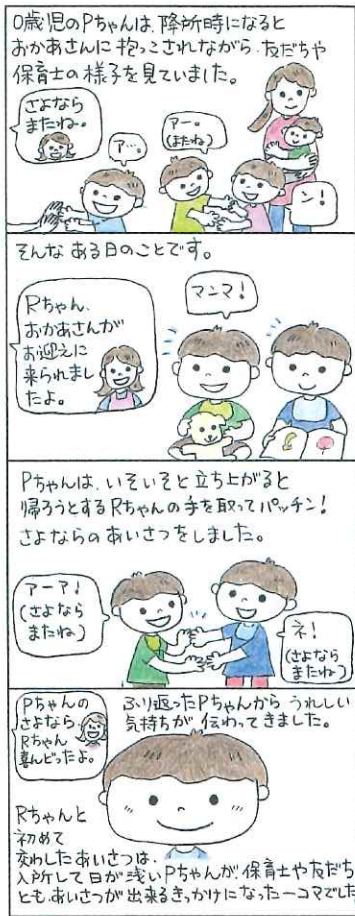 0歳児のPちゃんは、降所時になると
おかあさんに抱っこされながら、友だちや
保育士の様子を見ていました。
さよなら
またね。
ア…。
アー。
(またね)
ン!
そんなある日のことです。
Rちゃん、
おかあさんが
お迎えに
来られまし
たよ。
マンマ!
Pちゃんは、いそいそと立ち上がると
帰ろうとするRちゃんの手を取ってパッチン!
さよならのあいさつをしました。
アーア!
(さよなら
またね)
ネ!
(さよなら
またね)
Pちゃんの
さよなら
Rちゃん
喜んどったよ。
ふり返ったPちゃんから うれしい
気持ちが伝わってきました。
Rちゃんと
初めて
交わしたあいさつは、
入所して日が浅いPちゃんが、保育士や友だち
とも、あいさつが出来るきっかけになった一コマでした